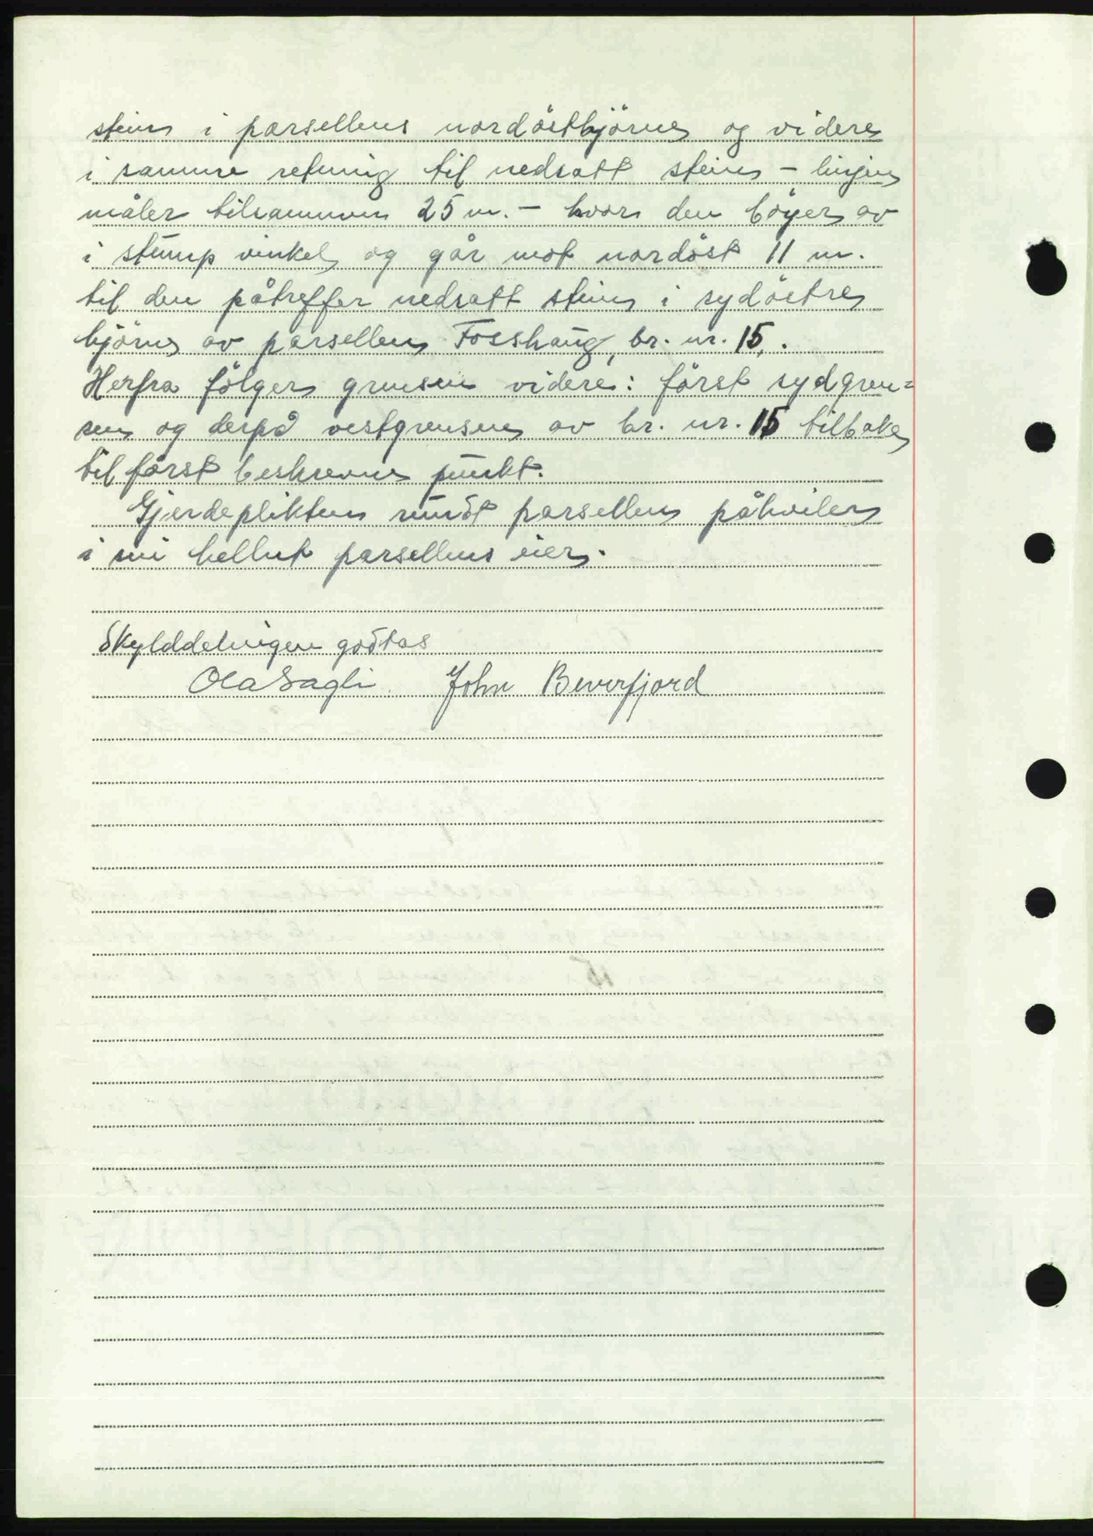 stein i parsellens nordösthjörne og videre
i samme retning til nedsatt stein – linjen
måler tilsammen 25 m. – hvor den böyer av
i stump vinkel og går mot nordöst 11 m.
til den påtreffer nedsatt stein i sydöstre
hjörne av parsellen Fosshaug, br. nr. 15.
Herfra fölger grensen videre: först sydgren=
sen og derpå vestgrensen av br. nr. 15 tilbake
til först beskrevne punkt.
Gjerdeplikten rundt parsellen påhviler
i sin helhet parsellens eier.
Skylddelingen godtas
Ola Sagli. John Beverfjord